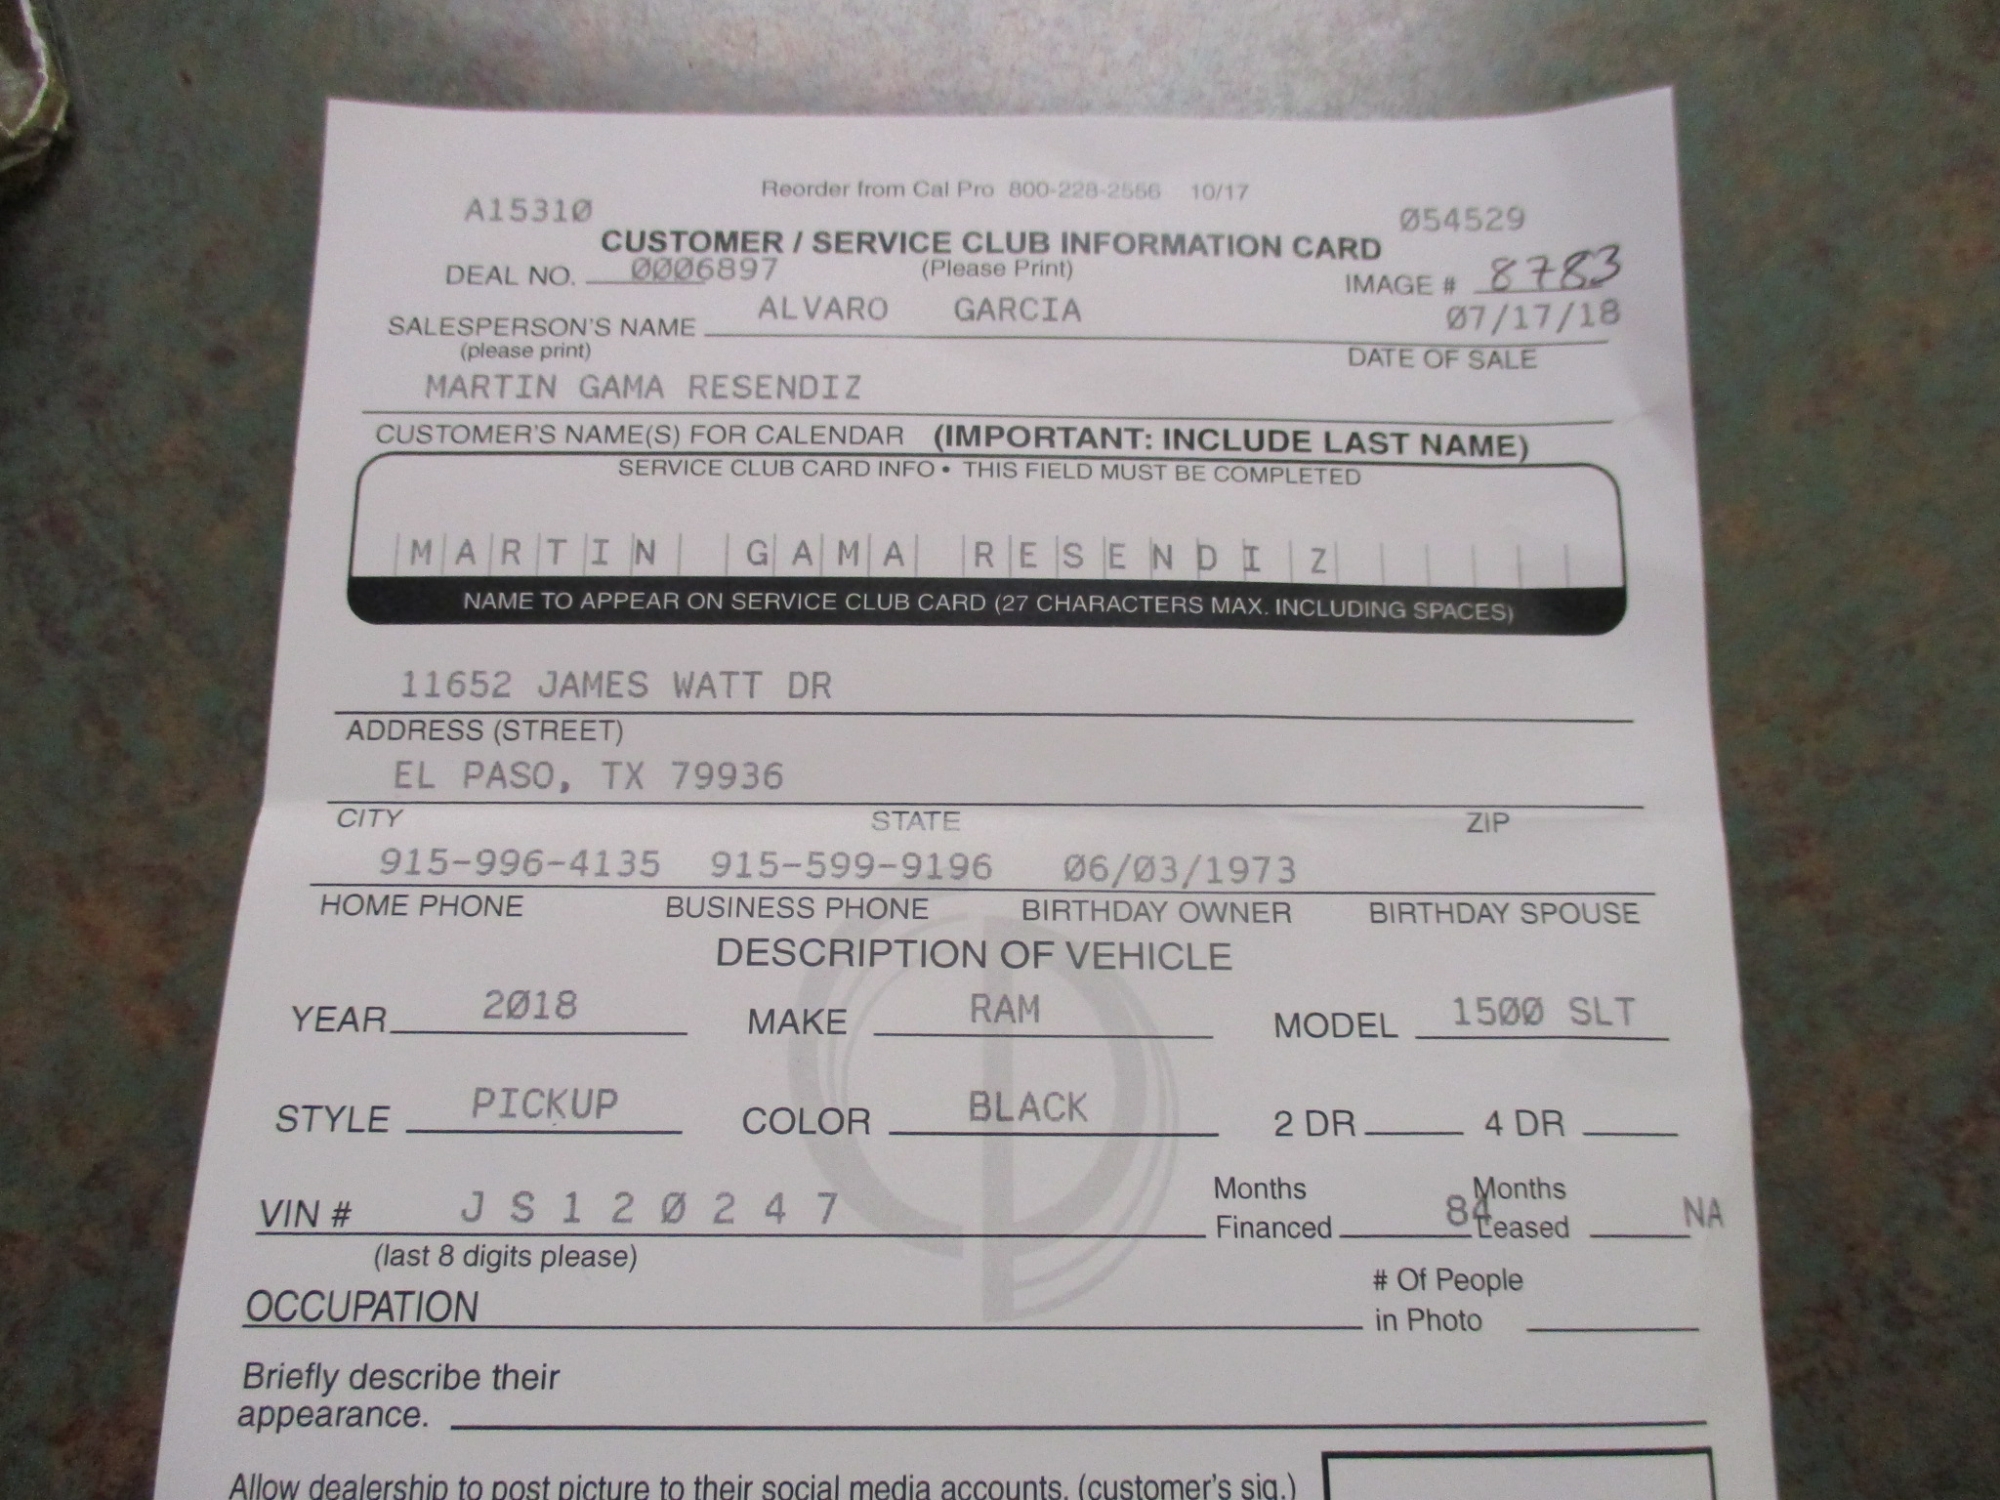 Reorder from Cal Pro 800-228-2566 10/17
A15310 054529
CUSTOMER / SERVICE CLUB INFORMATION CARD
DEAL NO. 0006897 (Please Print) IMAGE # 8783
SALESPERSON'S NAME ALVARO GARCIA 07/17/18
(please print) DATE OF SALE
MARTIN GAMA RESENDIZ
CUSTOMER'S NAME(S) FOR CALENDAR (IMPORTANT: INCLUDE LAST NAME)
SERVICE CLUB CARD INFO • THIS FIELD MUST BE COMPLETED
MARTIN GAMA RESENDIZ
NAME TO APPEAR ON SERVICE CLUB CARD (27 CHARACTERS MAX. INCLUDING SPACES)
11652 JAMES WATT DR
ADDRESS (STREET)
EL PASO, TX 79936
CITY STATE ZIP
915-996-4135 915-599-9196 06/03/1973
HOME PHONE BUSINESS PHONE BIRTHDAY OWNER BIRTHDAY SPOUSE
DESCRIPTION OF VEHICLE
YEAR 2018 MAKE RAM MODEL 1500 SLT
STYLE PICKUP COLOR BLACK 2 DR 4 DR
VIN # JS120247 Months Financed 84 Months Leased NA
(last 8 digits please)
OCCUPATION # Of People in Photo
Briefly describe their
appearance.
Allow dealership to post picture to their social media accounts. (customer's sig.)